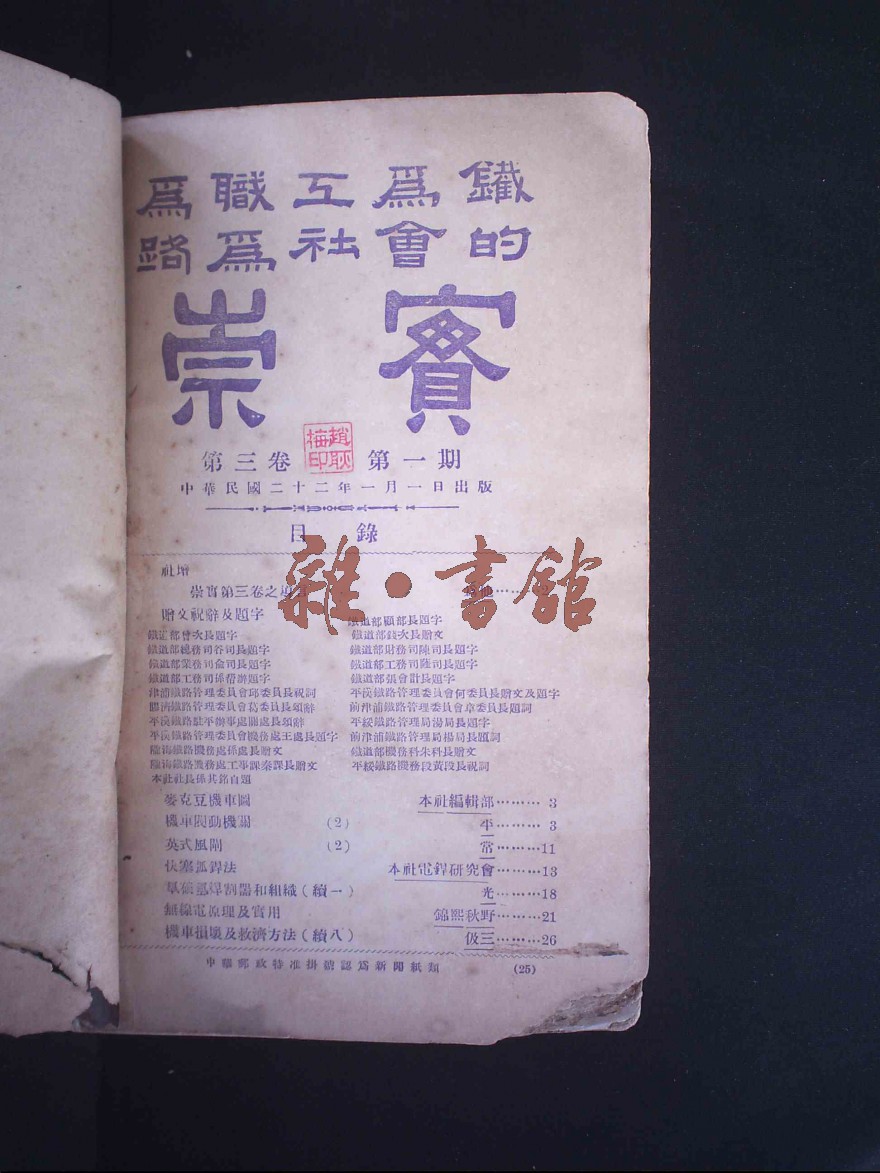 爲職工爲鐵
路爲社會的
崇實
第三卷 第一期
趙耿梅印
中華民國二十二年一月一日出版
目錄
雜·書館
社壇
崇實第三卷之
贈文祝辭及題字
鐵道部顧部長題字
鐵道部曾次長題字 鐵道部錢次長贈文
鐵道部總務司谷司長題字 鐵道部財務司陳司長題字
鐵道部業務司俞司長題字 鐵道部工務司薩司長題字
鐵道部工務司孫幫辦題字 鐵道部張會計長題字
津浦鐵路管理委員會邱委員長祝詞 平漢鐵路管理委員會何委員長贈文及題字
膠濟鐵路管理委員會葛委員長頌辭 前津浦鐵路管理委員會韋委員長題詞
平漢鐵路駐平辦事處關處長頌辭 平綏鐵路管理局湯局長題字
平漢鐵路管理委員會機務處王處長題字 前津浦鐵路管理局楊局長題詞
隴海鐵路機務處孫處長贈文 鐵道部機務科朱科長贈文
隴海鐵路機務處工事課秦課長贈文 平綏鐵路機務段黃段長祝詞
本社社長孫其銘自題
麥克豆機車圖 本社編輯部………3
機車閥動機關 (2) 平………3
英式風閘 (2) 常………11
快塞弧銲法 本社電銲研究會………13
氧礆器銲割器和組織(續一) 光………18
無線電原理及實用 錦熙秋野………21
機車損壞及救濟方法(續八) 伋三………26
中華郵政特准掛號認爲新聞紙類 (25)